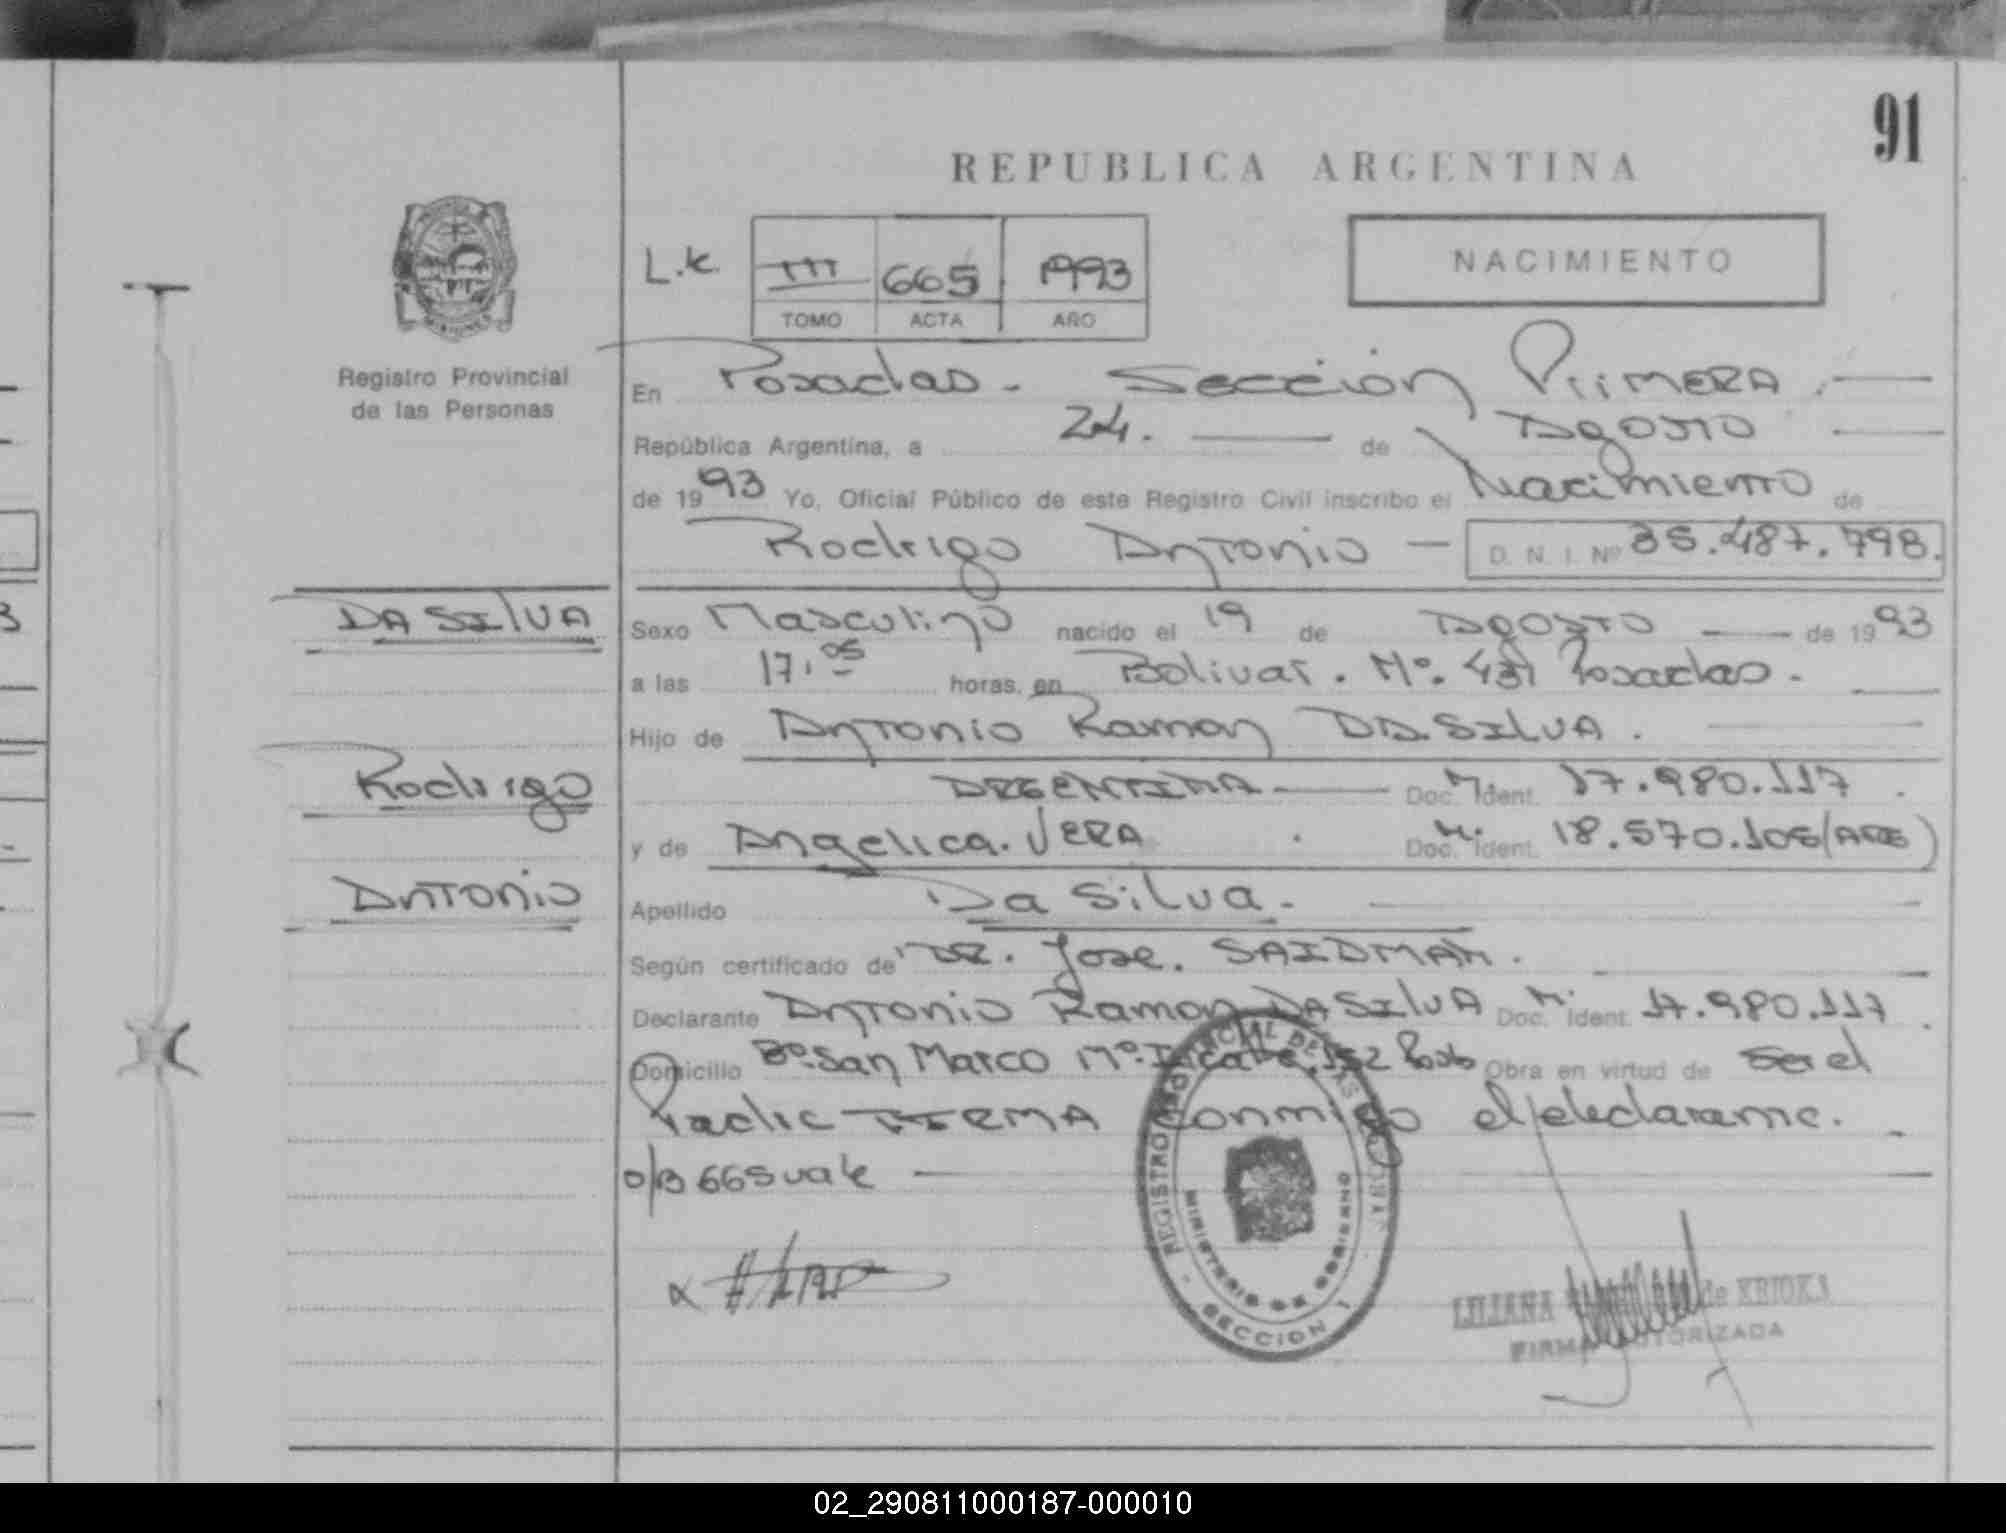 91
REPUBLICA ARGENTINA
L.k III 665 1993
TOMO ACTA AÑO
NACIMIENTO
Registro Provincial
de las Personas
En Posadas - Sección Primera
República Argentina, a 24. de Agosto
de 1993 Yo, Oficial Público de este Registro Civil inscribo el Nacimiento de
Rodrigo Antonio - D. N. I. Nº 35.487.798.
DA SILVA
Sexo Masculino nacido el 19 de Agosto de 1993
a las 17.05 horas, en Bolivar. Nº. 431 Posadas.
Hijo de Antonio Ramon DA SILVA.
Rodrigo
ARGENTINA Doc. Ident. 17.980.117
y de Angelica. VERA Doc. Ident. 18.570.105 (ARG)
Antonio
Apellido Da Silva.
Según certificado de DR. Jose. SAIDMAN.
Declarante Antonio Ramon DA SILVA Doc. Ident. 17.980.117
Domicilio Bº San Marco Mº. 152 Pdas Obra en virtud de Ser el
Padre FIRMA conmigo el declarante.
o/B 665 vale
REGISTRO PROVINCIAL DE LAS PERSONAS
MINISTERIO DE GOBIERNO
SECCION 1
LILIANA de KRIOKA
FIRMA AUTORIZADA
02_290811000187-000010